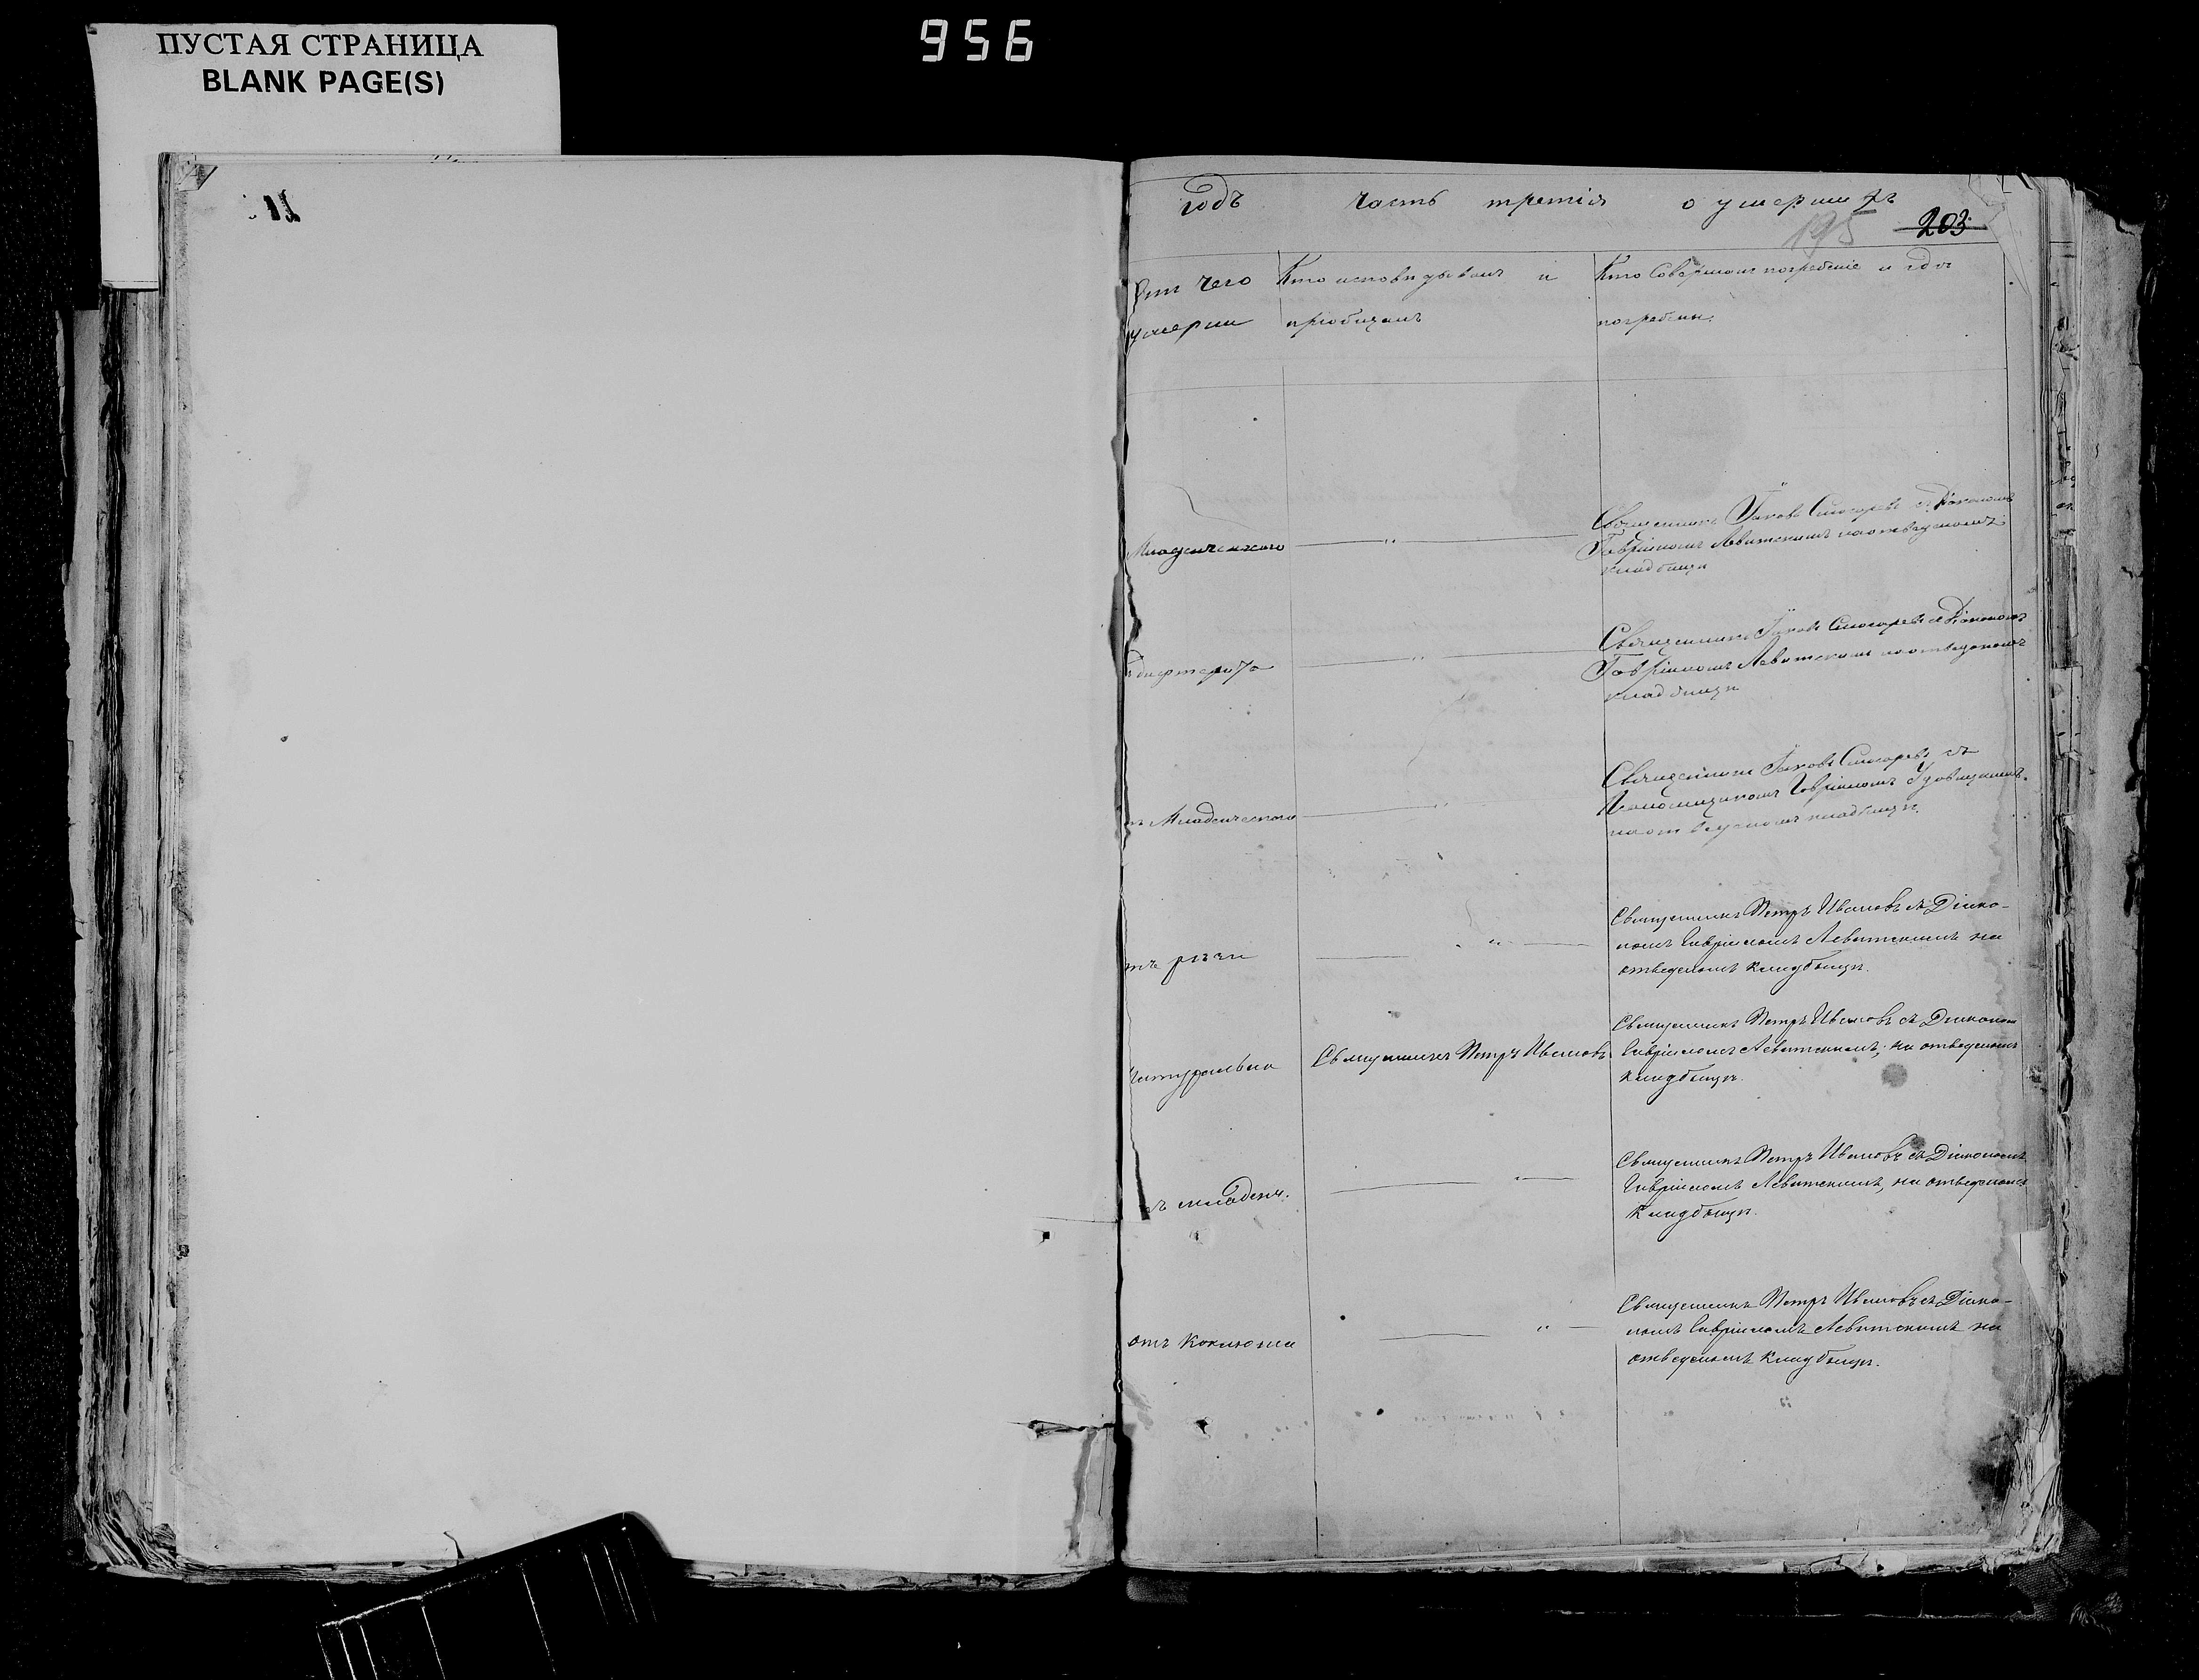 ПУСТАЯ СТРАНИЦА
BLANK PAGE(S)
956
годъ часть третія о умершихъ
195 203
Отъ чего
умерли
Кто исповѣдывалъ и
пріобщалъ
Кто совершалъ погребеніе и гдѣ
погребены.
Младенческаго
Священникъ Іаковъ съ Діакономъ
Гавріиломъ Левитскимъ на отведеномъ
кладбищѣ
дифтерита
Священникъ Іаковъ съ Діакономъ
Гавріиломъ Левитскимъ на отведеномъ
кладбищѣ
Младенческаго
Священникъ Іаковъ съ
Псаломщикомъ Гавріиломъ
на отведеномъ кладбищѣ.
отъ рѣзи
Священникъ Петръ Ивановъ съ Діако-
номъ Гавріиломъ Левитскимъ на
отведеномъ кладбищѣ.
Натурально
Священникъ Петръ Ивановъ
Священникъ Петръ Ивановъ съ Діакономъ
Гавріиломъ Левитскимъ, на отведеномъ
кладбищѣ.
отъ младенч.
Священникъ Петръ Ивановъ съ Діакономъ
Гавріиломъ Левитскимъ, на отведеномъ
кладбищѣ.
отъ коклюша
Священникъ Петръ Ивановъ съ Діако-
номъ Гавріиломъ Левитскимъ на
отведеномъ кладбищѣ.